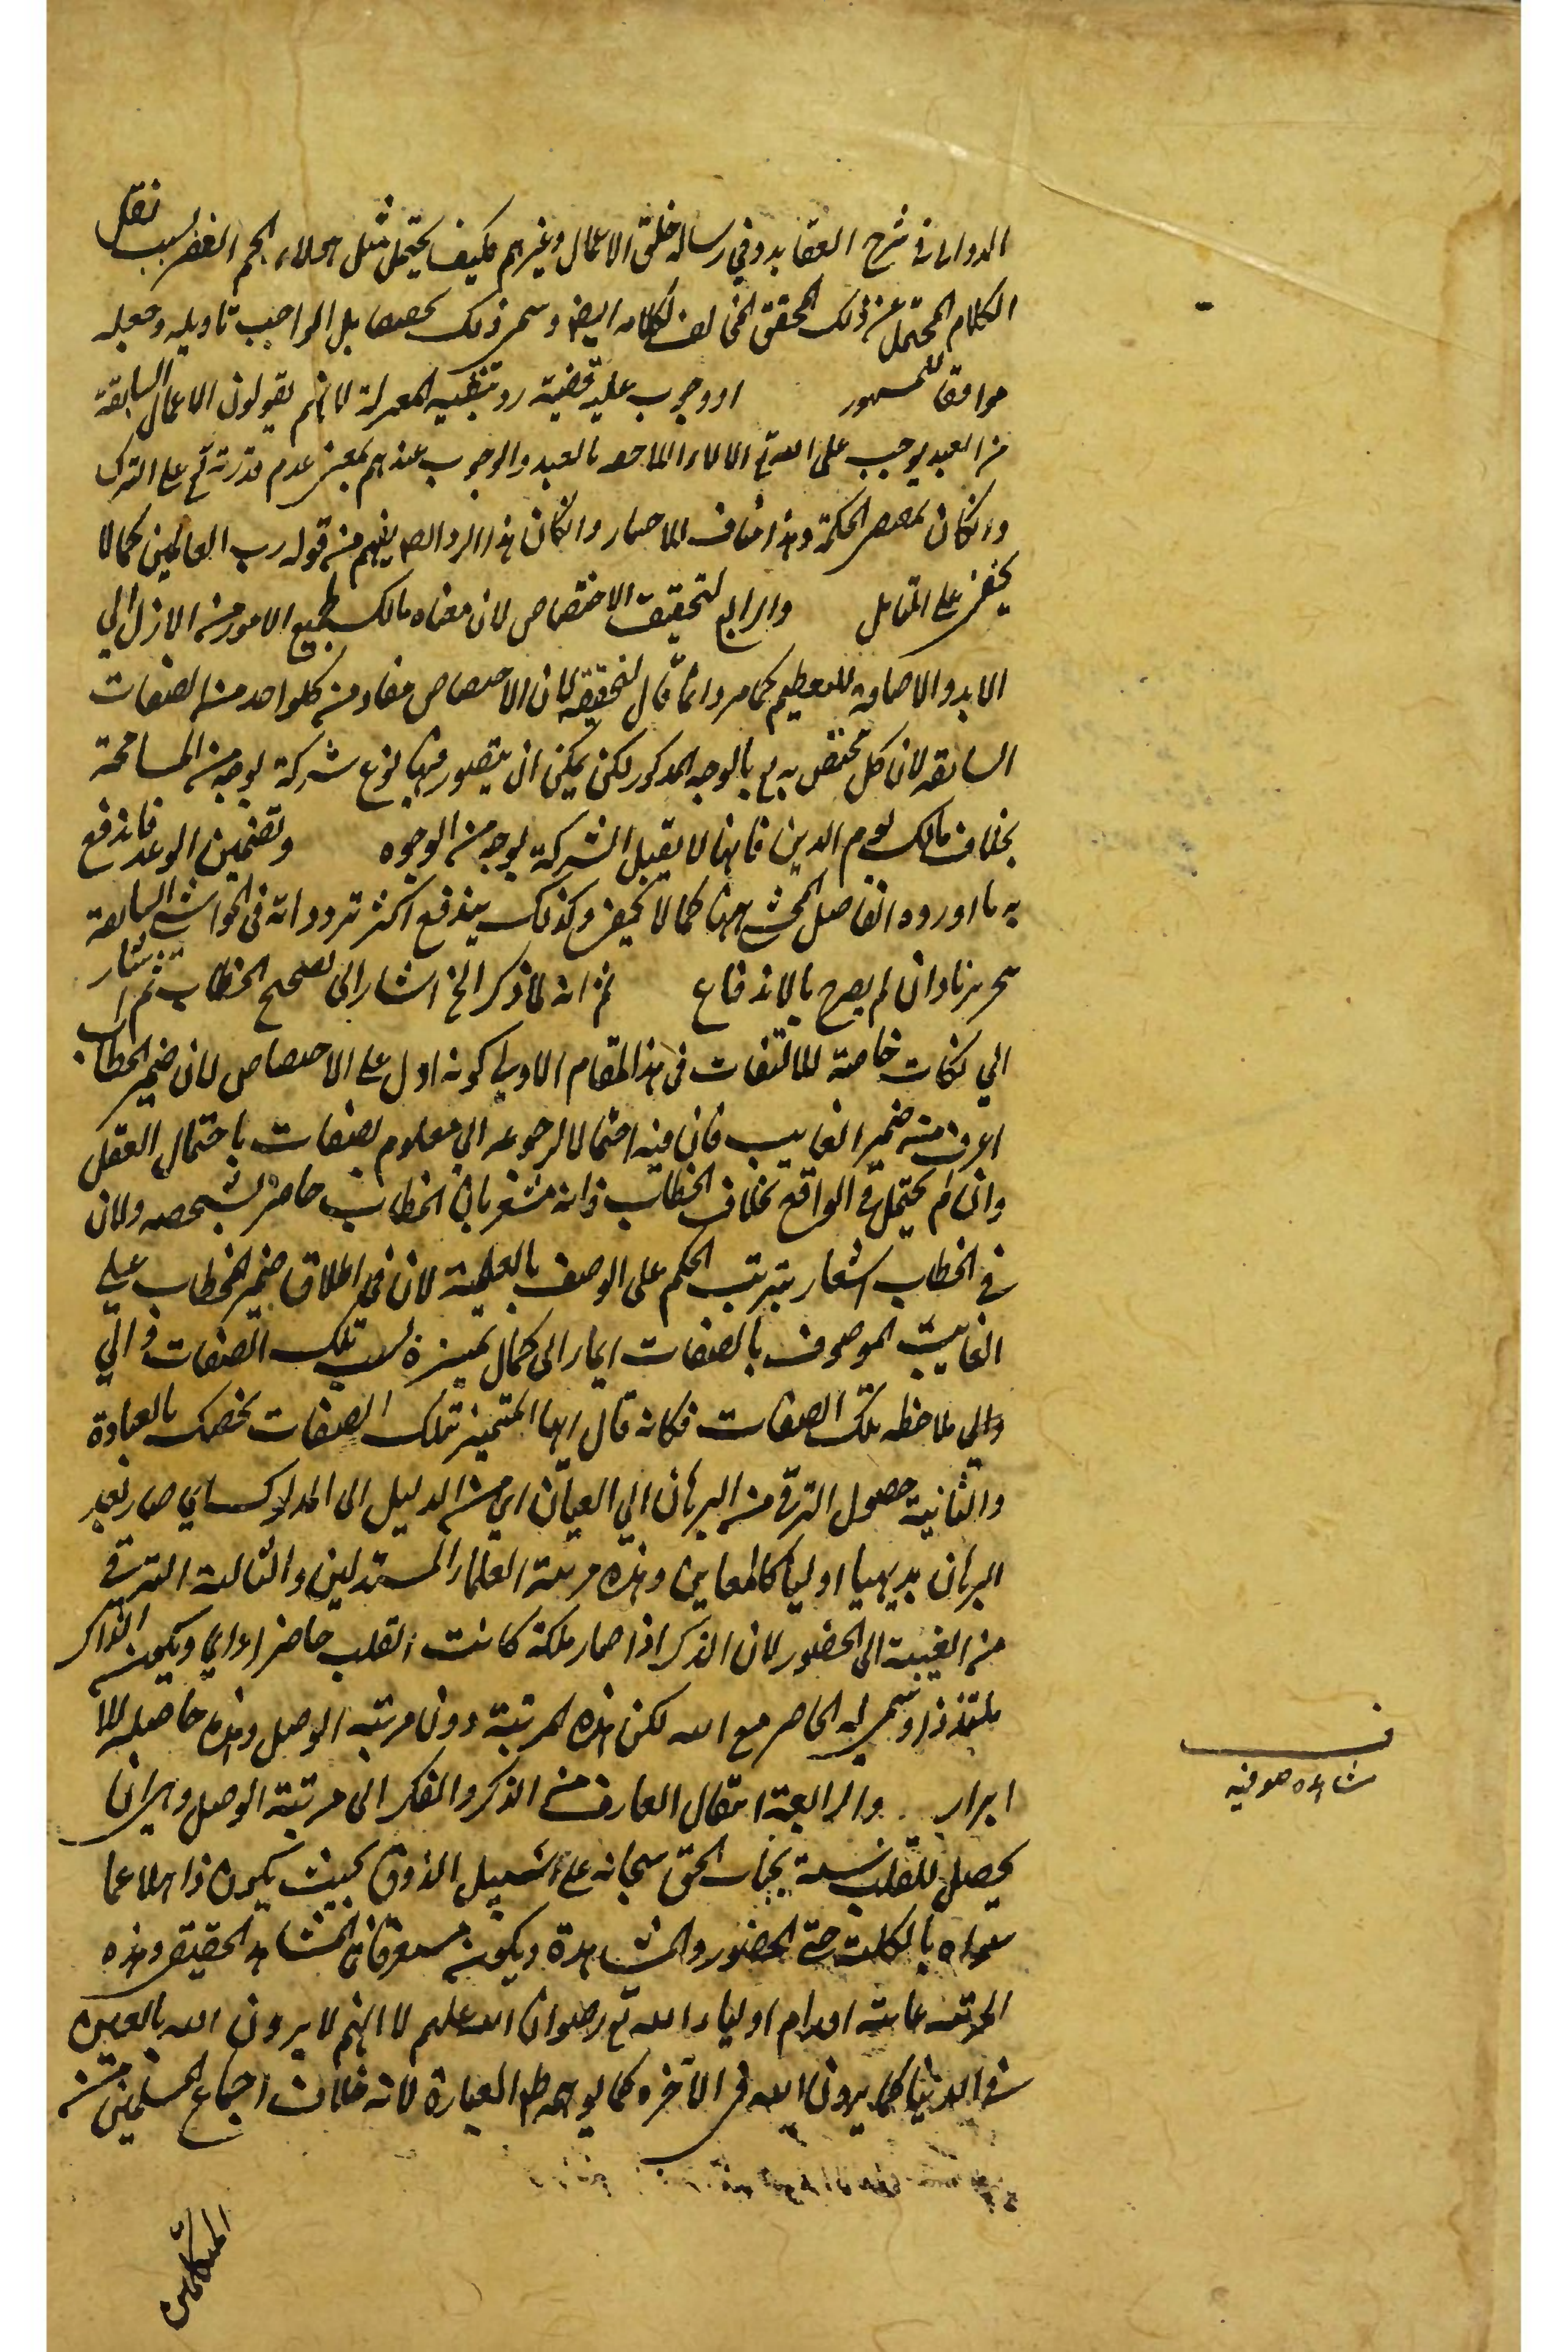 الدوانى فى شرح العقايد وفي رسالة خلق الاعمال وغيرهم فكيف يحتمل مثل هؤلاء الجم الغفير بسبب نقل
الكلام المحتمل عن ذلك المحقق المخالف لكلامه ايضا وسمى ذلك بل الواجب تاويله وجعله
موافقا للمشهور او وجوب عليه قضية رد تنبيه المعتزلة لانهم يقولون الاعمال السابقة
من العبد يوجب على الله تع بالعبد والوجوب عندهم بمعنى عدم قدرته تع على الترك
وان كان بمقتضى الحكمة وهذا مناف للاختيار وان كان هذا الرد ايضا يفهم من قوله رب العالمين كما لا
يخفى على المتامل والرابع لتحقيق الاختصاص لان معناه مالك جميع الامور من الازل الي
الابد والاضافة للتعظيم كما مر وانما قال لتحقيقه لان الاختصاص مفاد من كلواحد من الصفات
السابقه لان كل مختص به تع بالوجه المذكور لكن يمكن ان يتصور فيها نوع شركة بوجه من المسامحة
بخلاف مالك يوم الدين فانها لا يقبل الشركة بوجه من الوجوه وتضمين الوعد فاندفع
به ما اورده الفاضل المحشى ههنا كما لا يخفى وكذلك يندفع اكثر تردداته فى الحواشى السابقة
بتحريرنا وان لم يصرح بالاندفاع ثم انه لما ذكر الخ اشار الى تصحيح الخطاب ثم اشار
الي نكات خاصة للالتفات فى هذا المقام الاولى كونه ادل على الاختصاص لان ضمير الخطاب
اعرف من ضمير الغايب فان فيه احتمالا لرجوعه الي معلوم بصفات باحتمال العقل
وان لم يحتمل فى الواقع بخلاف الخطاب فانه مشعر بان المخاطب حاضر بشخصه ولان
فى الخطاب اشعار بترتب الحكم على الوصف بالعلية لان فى اطلاق ضمير المخطاب على
الغايب الموصوف بالصفات ايماء الى كمال تميزه بسبب تلك الصفات والي
والي ملاحظه تلك الصفات فكانه قال ايها المتميز بتلك الصفات نخصك بالعبادة
والثانية حصول الترقى من البرهان الي العيان اي من الدليل الى المدلول اي صار بعد
البرهان بديهيا اوليا كالمعاين وهذه مرتبة العلماء المستدلين والثالثة الترقى
من الغيبة الى الحضور لان الذكر اذا صار ملكة كانت القلب حاضرا ويكون الذاكر
ملتذذا وسمى له الحاضر مع الله لكن هذه المرتبة دون مرتبة الوصل وهذه حاصلة للا
ابرار والرابعة انتقال العارف من الذكر والفكر الى مرتبة الوصل وهى ان
يحصل للقلب نسبة بجناب الحق سبحانه على سبيل الذوق بحيث يكون ذاهلا عما
سواه بالكلية حتى الحضور والمشاهدة ويكون مستغرقا فى المشاهد الحقيقى وهذه
المرتبه غاية اقدام اولياء الله تع رضوان الله عليهم لا انهم لا يرون الله بالعين
فى الدنيا كما يرون الله فى الآخره كما يوهمه ظ العبارة لانه خلاف اجماع المسلمين من
المتكلمين
ف
مشاهده صوفيه